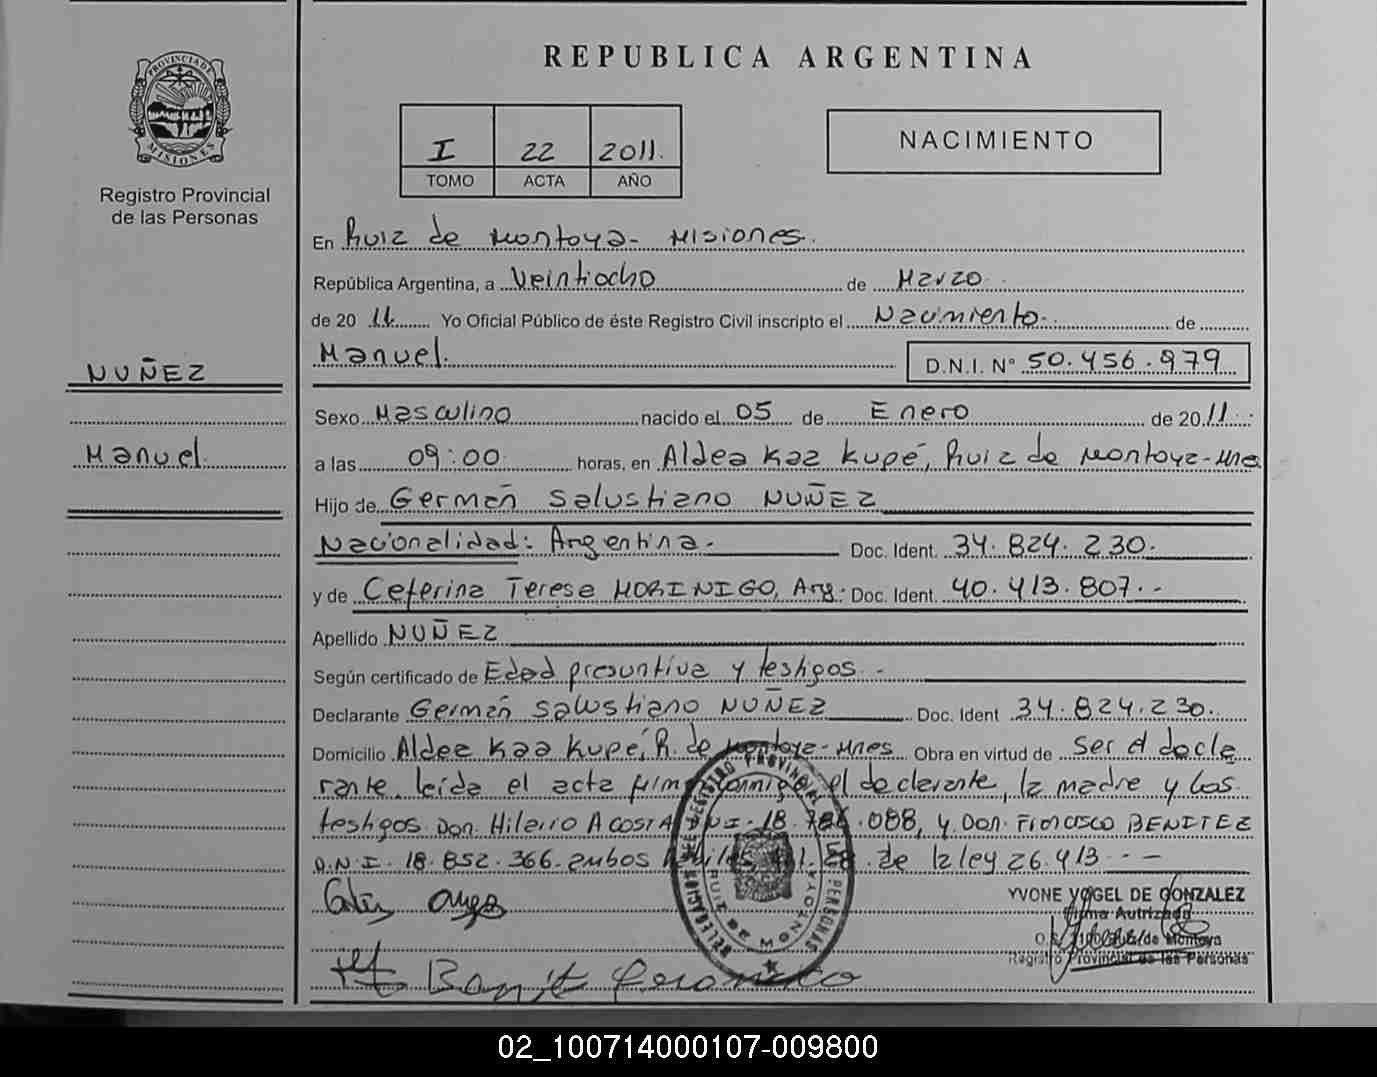 PROVINCIA DE
MISIONES
Registro Provincial
de las Personas
NUÑEZ
Manuel.
REPUBLICA ARGENTINA
I 22 2011.
TOMO ACTA AÑO
NACIMIENTO
En Ruiz de Montoya - Misiones.
República Argentina, a Veintiocho de Marzo.
de 2011 Yo Oficial Público de éste Registro Civil inscripto el Nacimiento. de
Manuel. D.N.I. Nº 50.456.979
Sexo Masculino nacido el 05 de Enero de 2011.
a las 09:00 horas, en Aldea Kaa Kupé, Ruiz de Montoya-Mnes
Hijo de Germán Salustiano NUÑEZ
Nacionalidad: Argentina. Doc. Ident. 34.824.230.
y de Ceferina Teresa MORINIGO, Arg. Doc. Ident. 40.413.807.-
Apellido NUÑEZ
Según certificado de Edad presuntiva y testigos.-
Declarante Germán Salustiano NUÑEZ Doc. Ident 34.824.230.
Domicilio Aldea Kaa Kupé, R. de Montoya-Mnes Obra en virtud de Ser el decla
rante. Leída el acta firma conmigo el declarante, la madre y los
testigos Don. Hilario ACOSTA DNI-18.786.088, y Don. Francisco BENITEZ
D.N.I. 18.852.366. ambos de la ley 26.413.--
DELEGACION DE REGISTRO PROVINCIAL DE LAS PERSONAS
RUIZ DE MONTOYA
YVONE VOGEL DE GONZALEZ
Firma Autrizada
Montoya
Registro Provincial de las Personas
02_100714000107-009800